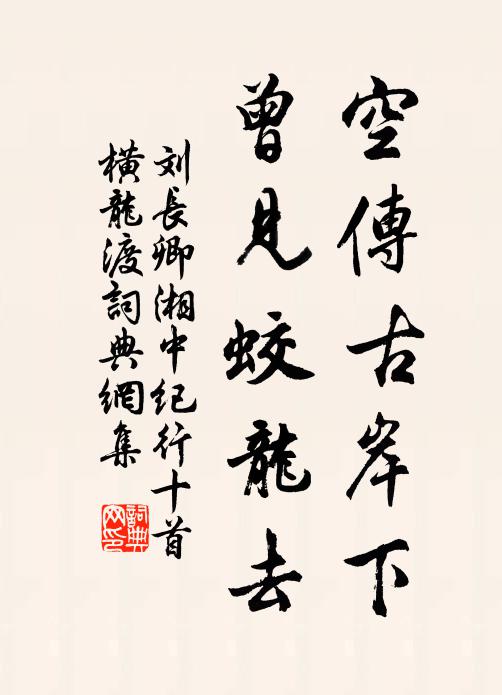 空傳古岸下
曾見蛟龍去
刘長卿湘中纪行十首
橫龍渡詞典網集
詞典
网印